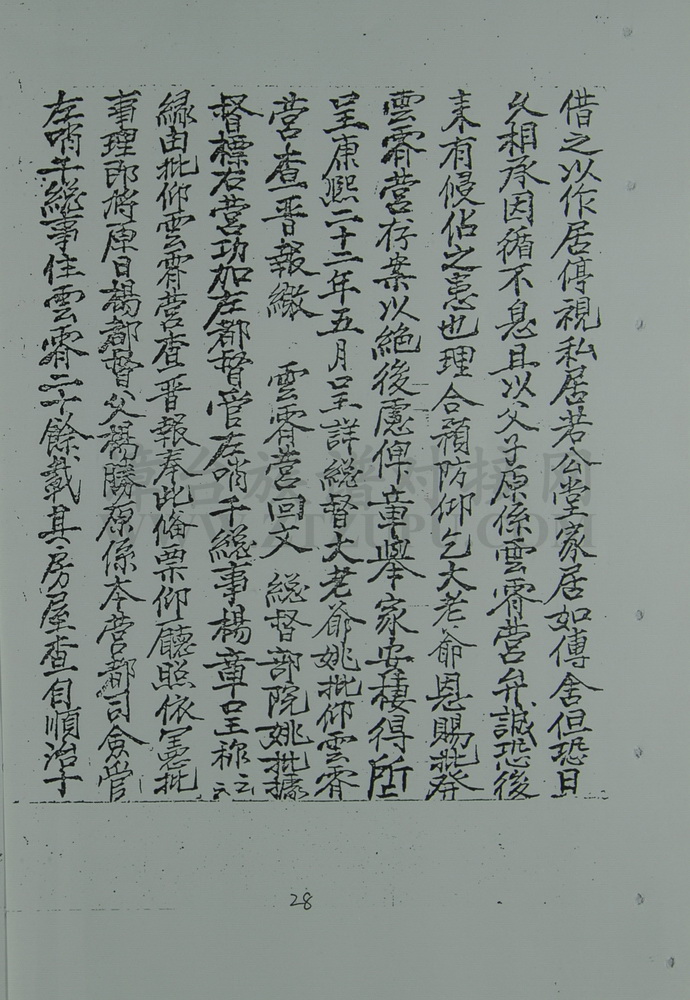 借之以作居停視私居若公堂家居如傳舍但恐日
久相承因循不息且以父子原係雲霄營弁誠恐後
来有侵佔之患也理合預防仰乞大老爺恩賜批發
雲霄營存案以絶後慮俾章舉家安棲得所
呈康熙二十二年五月呈詳総督大老爺姚批仰雲霄
營查晋報繳 雲霄營回文 総督部院姚批據
督標右營功加左都督管左哨千総事楊章呈称云云
縁由批仰雲霄營查晋報奉此俻票仰廳照依憲批
事理即將原日楊都督父楊勝原係本營都司僉管
左哨千総事住雲霄二十餘載其房屋查自順治十
28